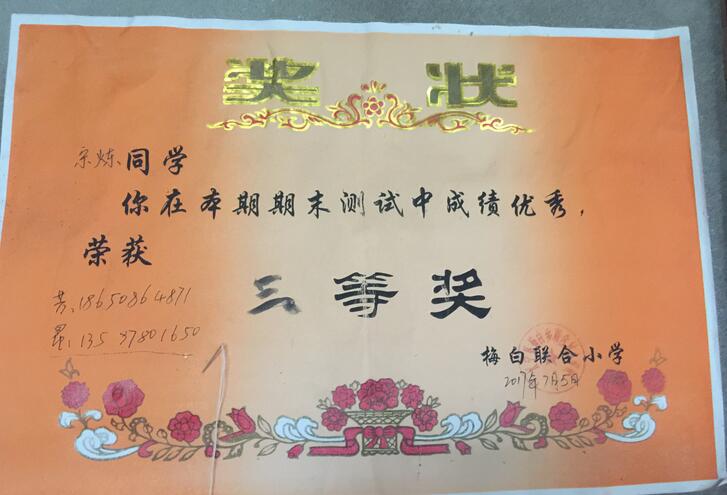 奖状
宗炼同学
你在本期期末测试中成绩优秀,
荣获
三等奖
芳:18650864871
星:13597801650
梅白联合小学
2017年7月5日